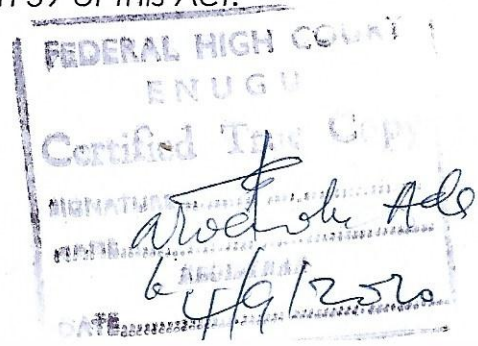 n 59 of this Act.
FEDERAL HIGH COURT
ENUGU
Certified True Copy
SIGNATURE
NAME
DATE 4/9/2020